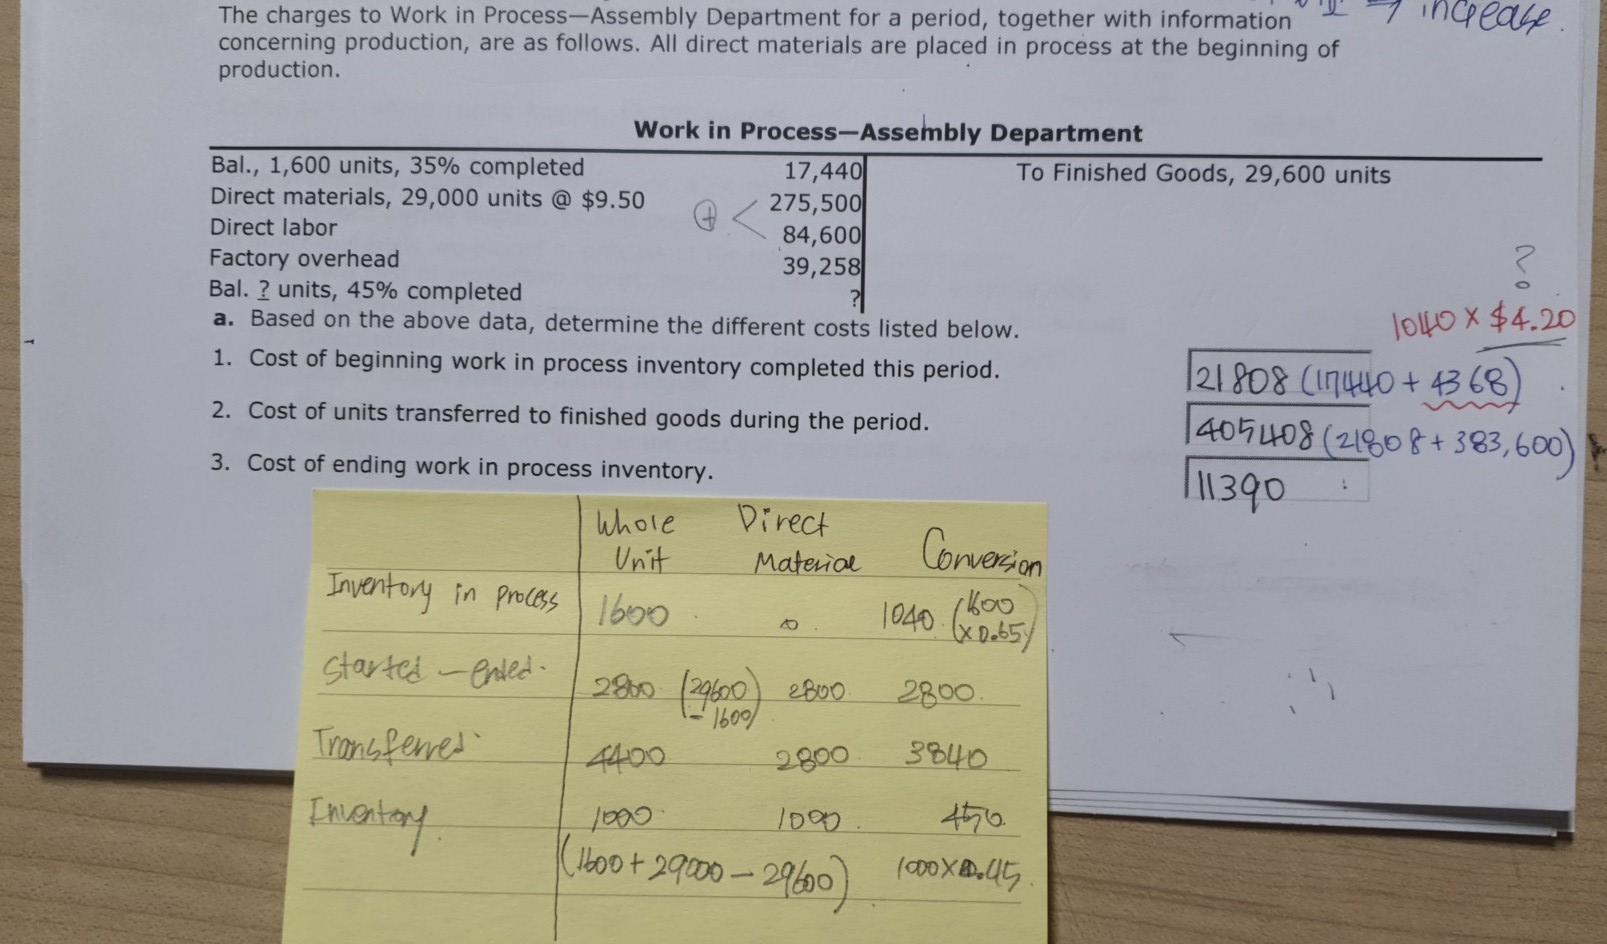 → increase.
The charges to Work in Process—Assembly Department for a period, together with information
concerning production, are as follows. All direct materials are placed in process at the beginning of
production.
Work in Process—Assembly Department
Bal., 1,600 units, 35% completed 17,440 To Finished Goods, 29,600 units
Direct materials, 29,000 units @ $9.50 275,500
+ <
Direct labor 84,600
Factory overhead 39,258
Bal. ? units, 45% completed ?
?
a. Based on the above data, determine the different costs listed below.
1040 × $4.20
1. Cost of beginning work in process inventory completed this period.
21808 (17440 + 4368)
2. Cost of units transferred to finished goods during the period.
405408 (21808 + 383,600)
3. Cost of ending work in process inventory.
11390
Whole Unit Direct Material Conversion
Inventory in process 1600 0 1040 (1600 × 0.65)
Started - Ended 2800 (29600 - 1600) 2800 2800
Transferred 4400 2800 3840
Inventory 1000 1000 450
(1600 + 29000 - 29600) 1000×0.45